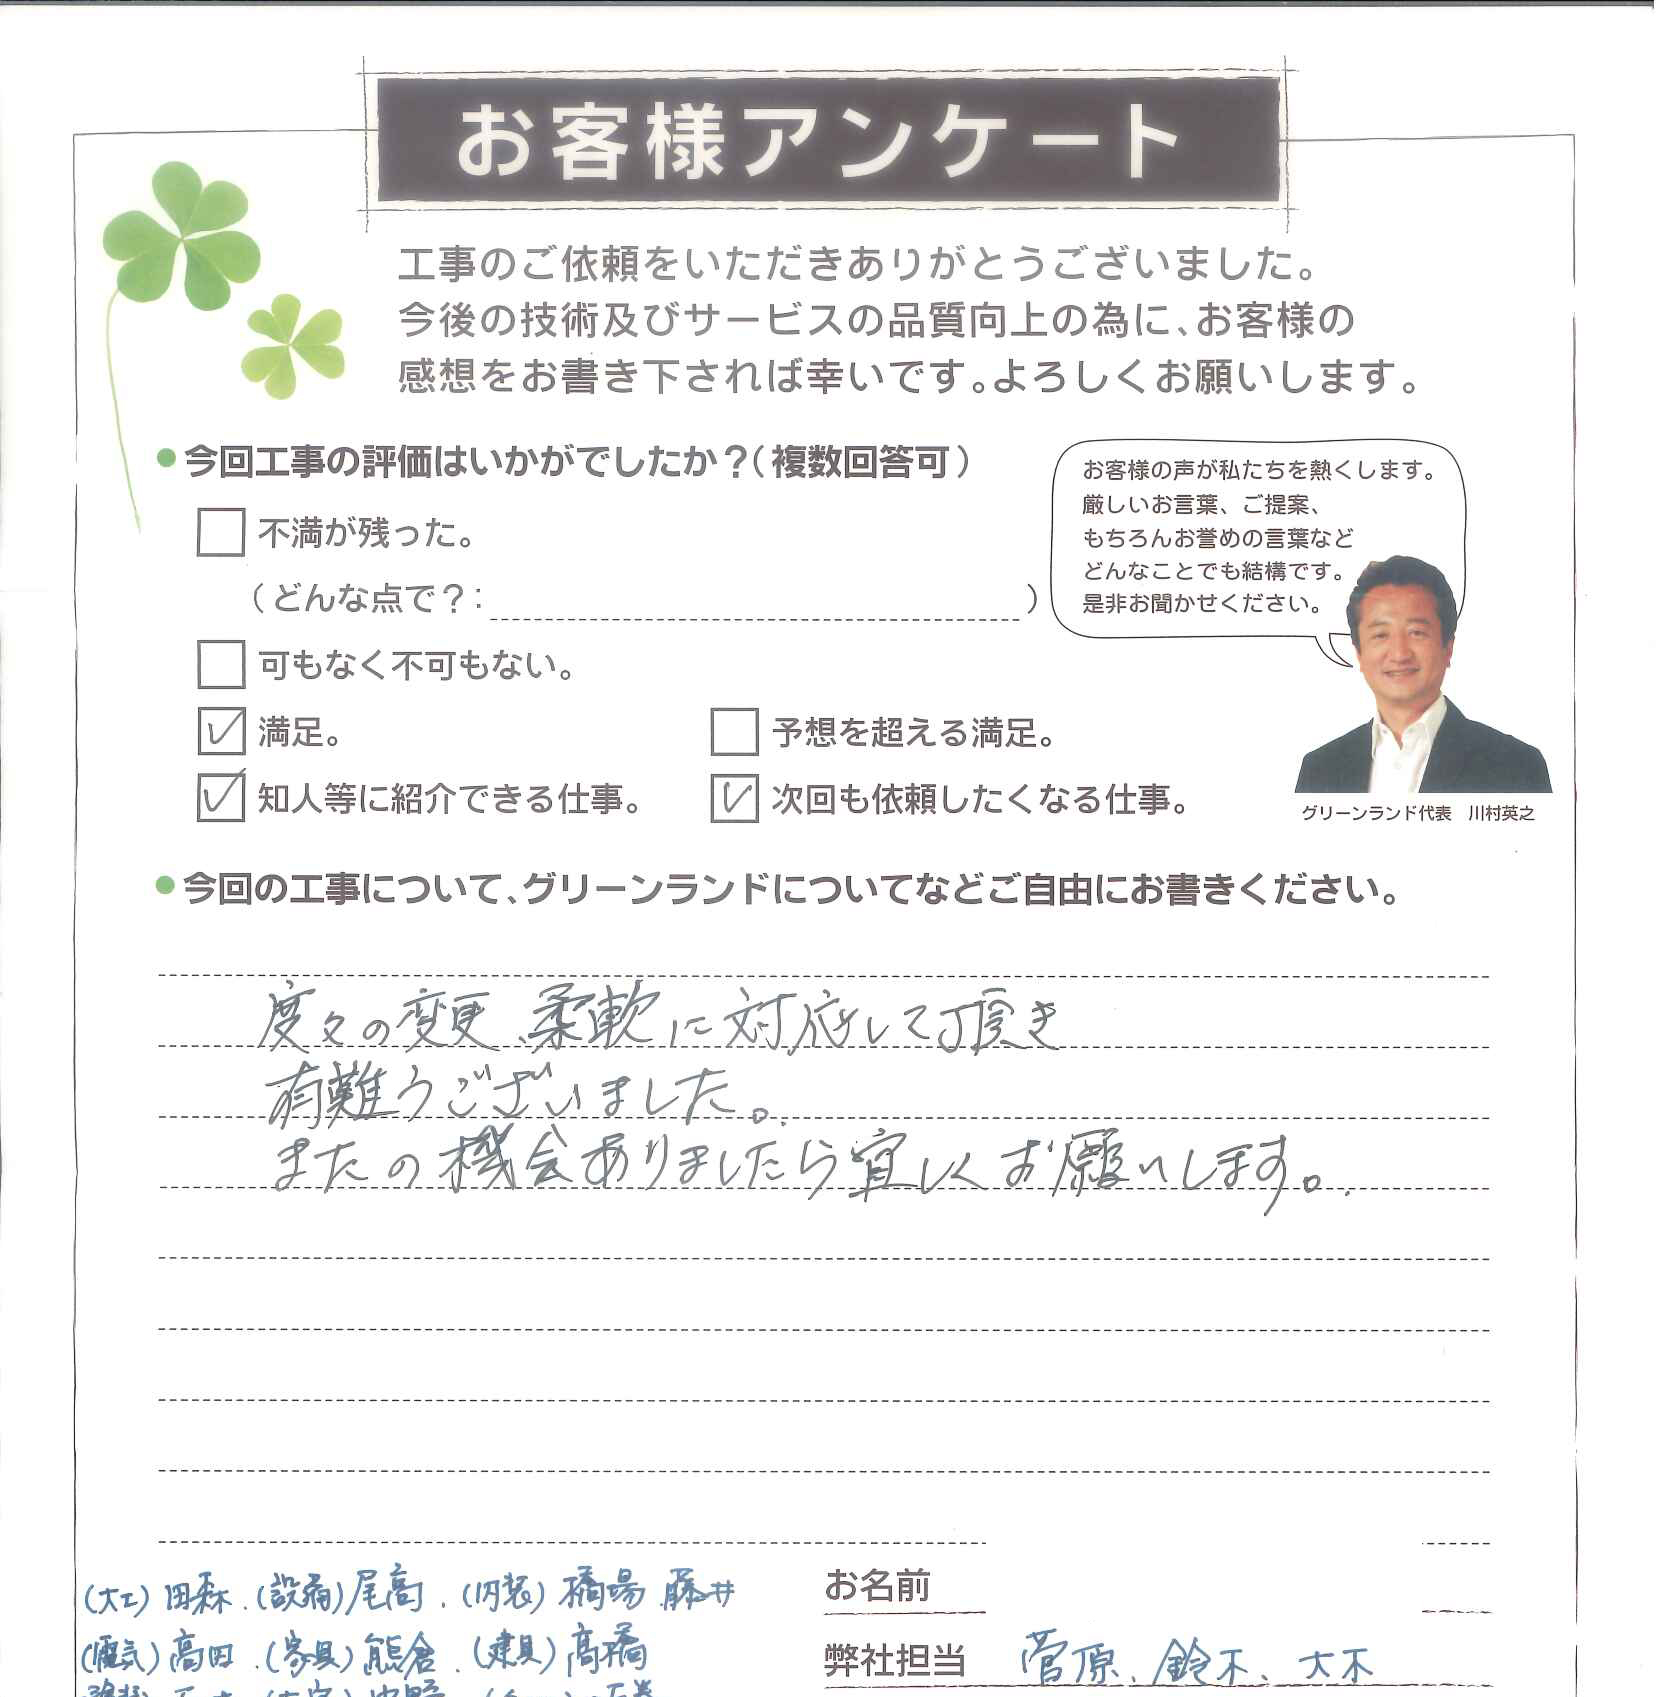 お客様アンケート
工事のご依頼をいただきありがとうございました。
今後の技術及びサービスの品質向上の為に、お客様の
感想をお書き下されば幸いです。よろしくお願いします。
今回工事の評価はいかがでしたか？（複数回答可）
不満が残った。
（どんな点で？： ）
可もなく不可もない。
満足。 予想を超える満足。
知人等に紹介できる仕事。 次回も依頼したくなる仕事。
お客様の声が私たちを熱くします。
厳しいお言葉、ご提案、
もちろんお誉めの言葉など
どんなことでも結構です。
是非お聞かせください。
グリーンランド代表 川村英之
今回の工事について、グリーンランドについてなどご自由にお書きください。
度々の変更、柔軟に対応して頂き
有難うございました。
またの機会ありましたら宜しくお願いします。
(大工) 田森、(設備) 尾高、(内装) 橋場 藤井
(電気) 高田、(家具) 熊倉、(建具) 高橋
お名前
弊社担当 菅原、鈴木、大木